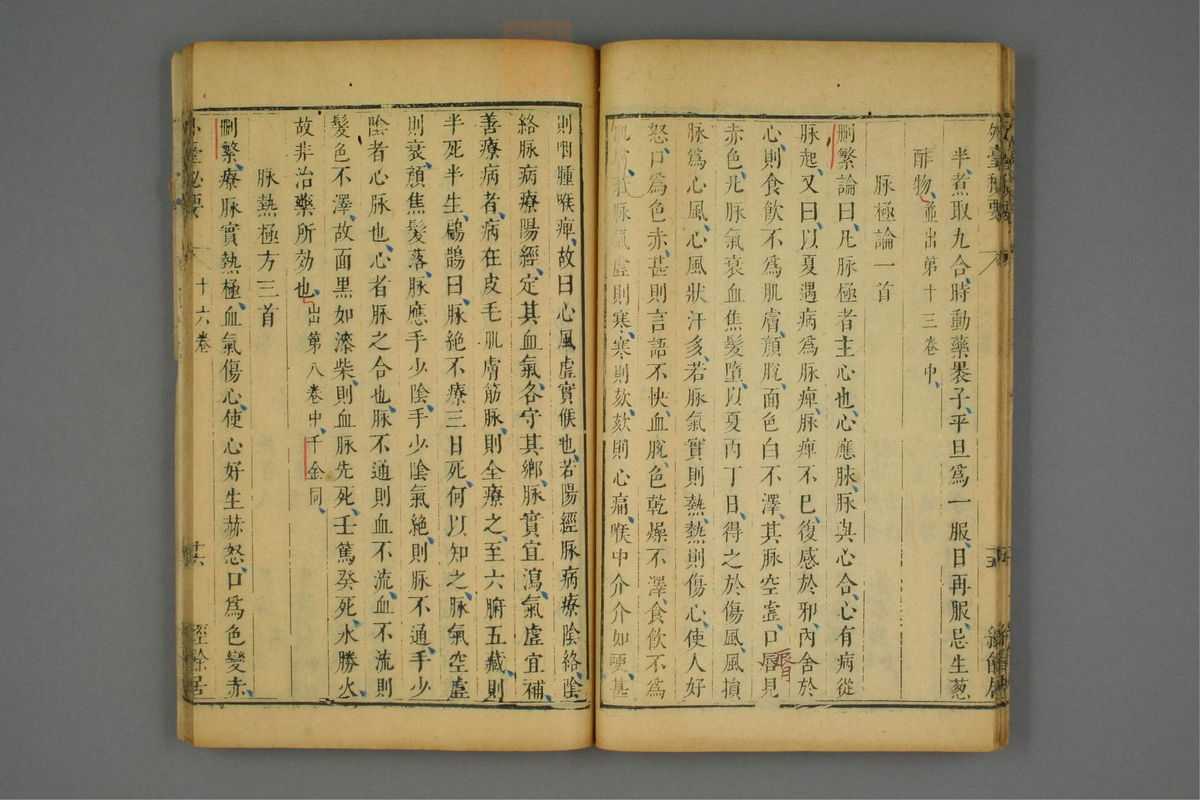 半煮取九合時動藥褁子平旦爲一服日再服忌生葱
酢物並出第十三卷中
脉極論一首
刪繁論曰凡脉極者主心也心應脉脉與心合心有病從
脉起又曰以夏遇病爲脉痺脉痺不已復感於邪內舍於
心則食飲不爲肌膚顔脫面色白不澤其脉空虛口唇見
赤色凡脉氣衰血焦髮墮以夏丙丁日得之於傷風風損
脉爲心風心風狀汗多若脉氣實則熱熱則傷心使人好
怒口爲色赤甚則言語不快血脫色乾燥不澤食飲不爲
肌膚若脉氣虛則寒寒則欬欬則心痛喉中介介如哽甚
則咽腫喉痺故曰心風虛實候也若陽經脉病療陰絡陰
絡脉病療陽經定其血氣各守其鄉脉實宜瀉氣虛宜補
善療病者病在皮毛肌膚筋脉則全療之至六腑五藏則
半死半生扁鵲曰脉絕不療三日死何以知之脉氣空虛
則衰顔焦髮落脉應手少陰手少陰氣絕則脉不通手少
陰者心脉也心者脉之合也脉不通則血不流血不流則
髮色不澤故面黑如漆柴則血脉先死壬篤癸死水勝火
故非治藥所効也出第八卷中千金同
脉熱極方三首
刪繁療脉實熱極血氣傷心使心好生赫怒口爲色變赤
外臺秘要
十六卷
廿六
經餘居